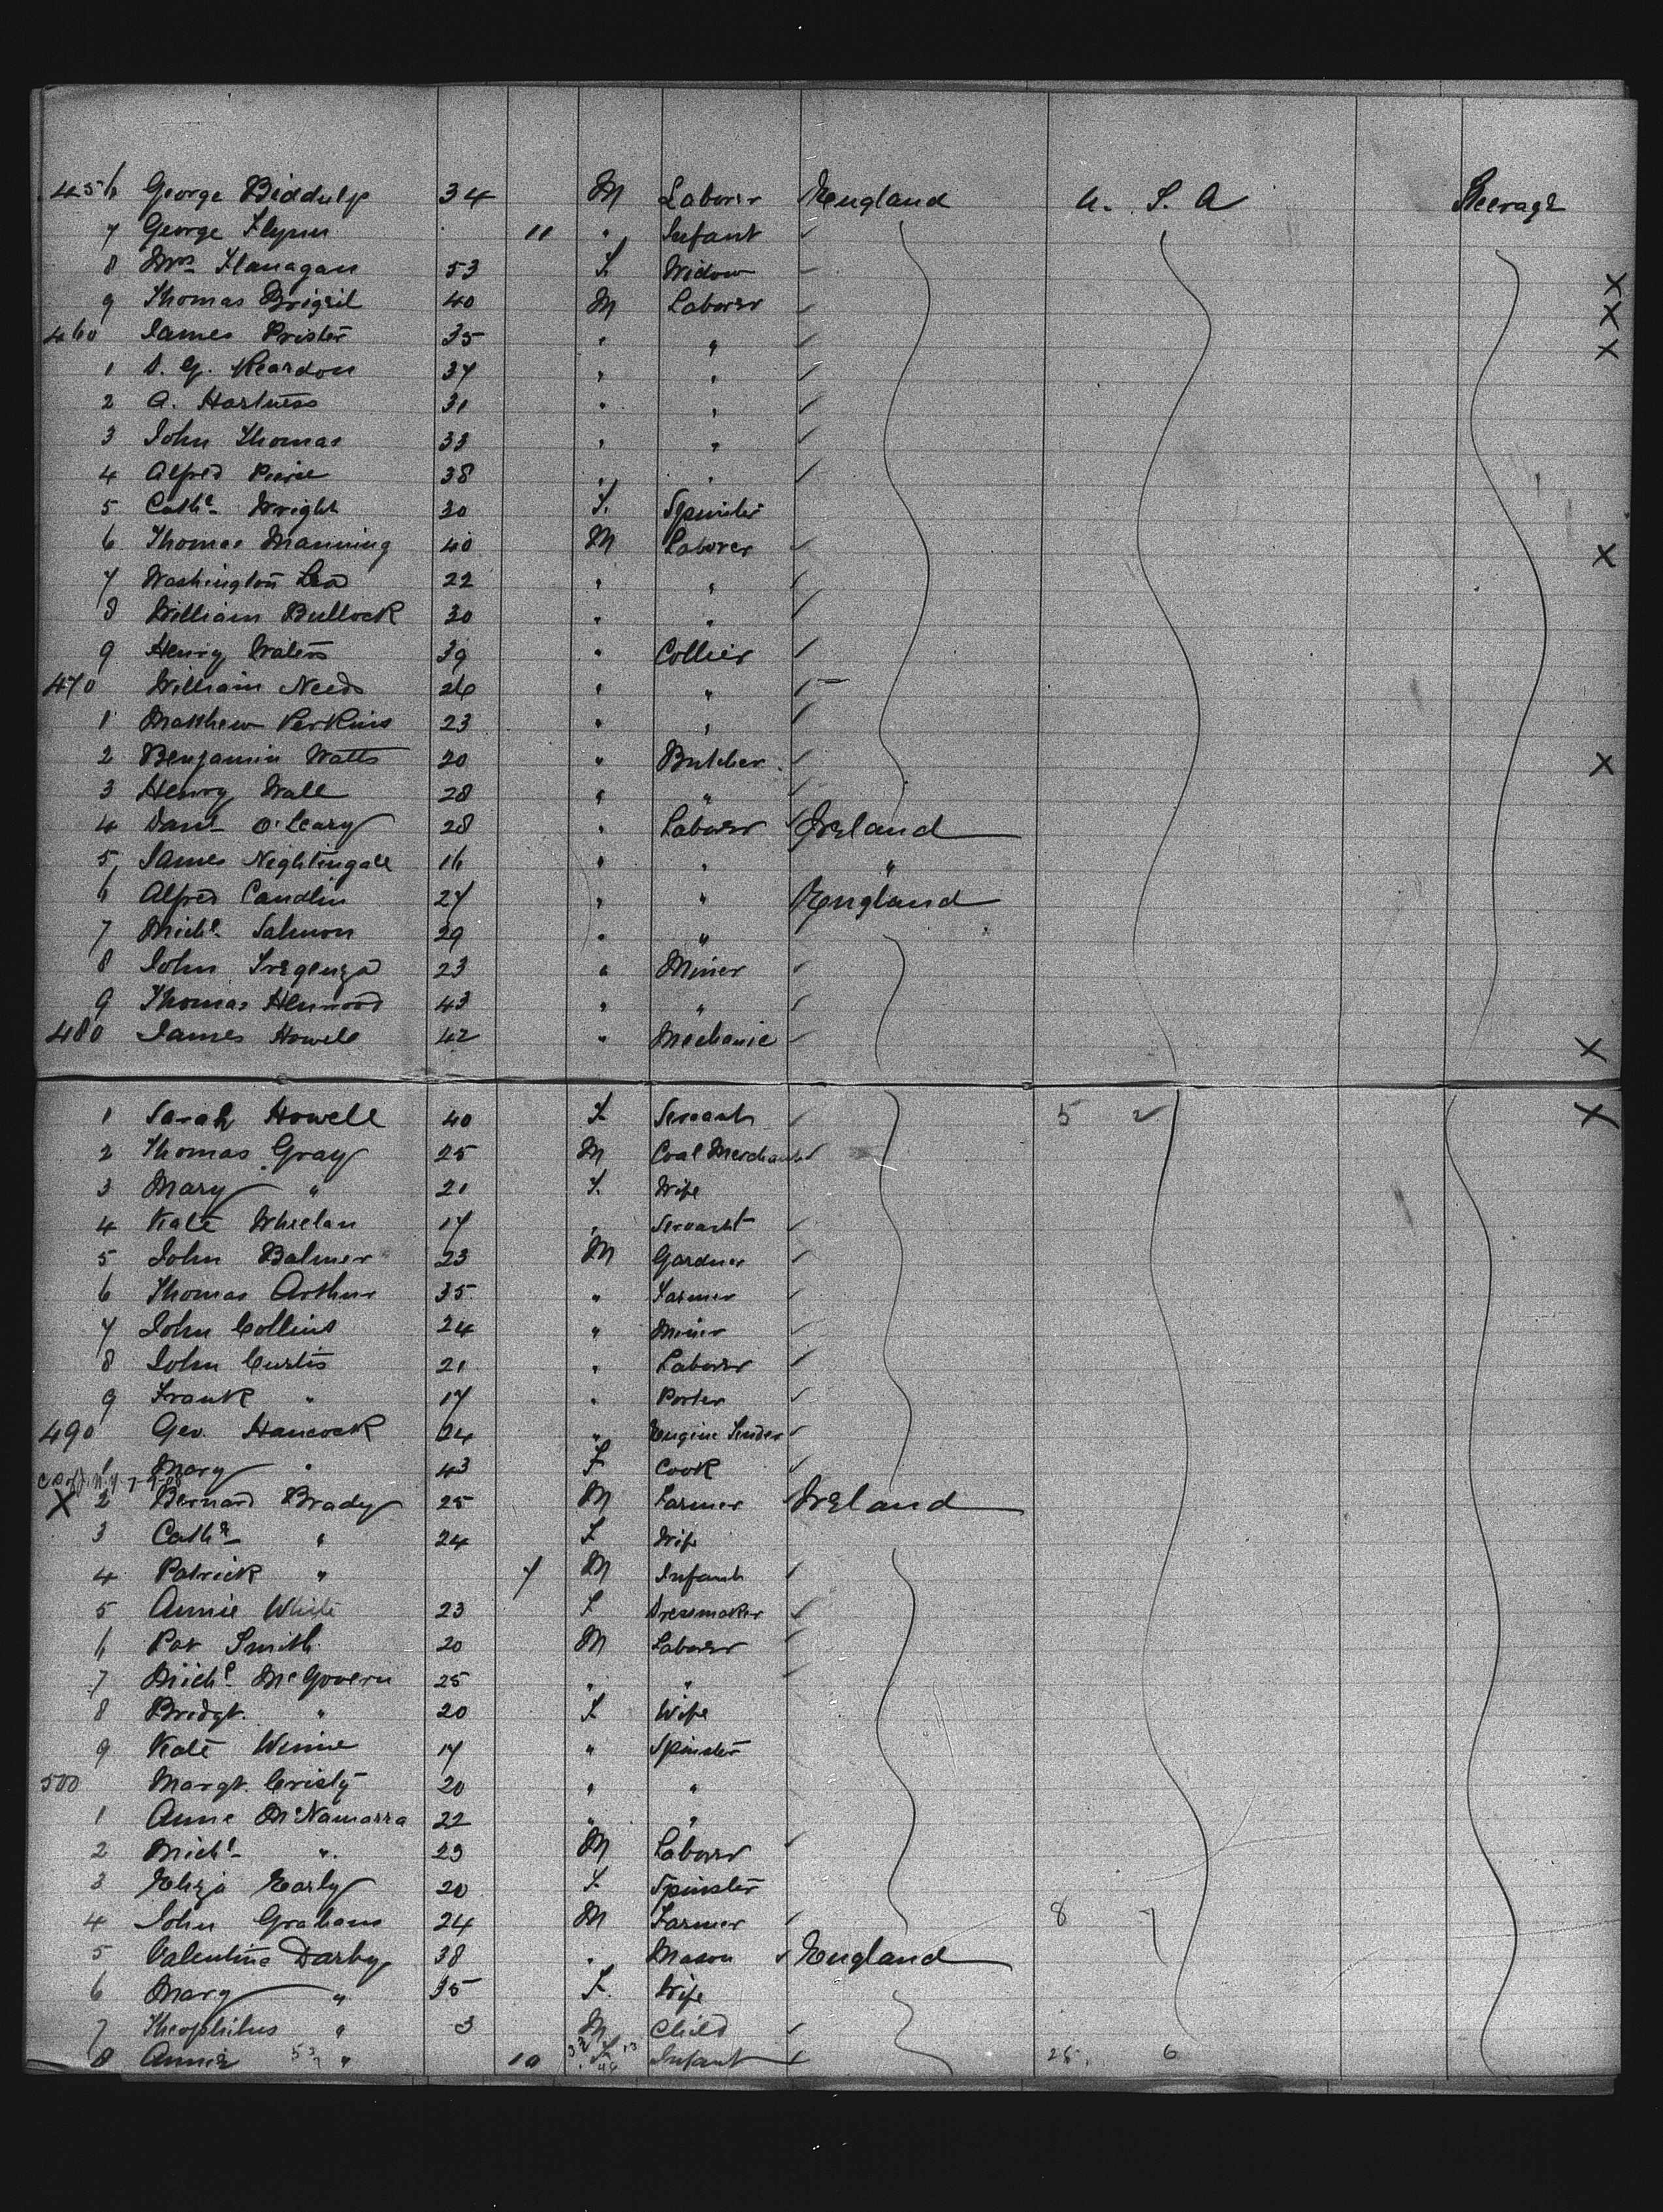 456 George Biddulp 34 M Laborer England U. S. A Steerage
7 George Flynn 11 " Infant
8 Mrs Flanagan 53 F. Widow
9 Thomas 40 M Laborer
460 James 35 " "
1 Reardon 37 " "
2 A. Hartness 31 " "
3 John Thomas 33 " "
4 Alfred 38 " "
5 Cathe Wright 30 F. Spinster
6 Thomas Manning 40 M Laborer
7 Washington 22 " "
8 William Bullock 30 " "
9 Henry Waters 39 " Collier
470 William Needs 26 " "
1 Matthew Perkins 23 " "
2 Benjamin Watts 20 " Butcher
3 Henry Wall 28 " "
4 Danl O'Leary 28 " Laborer Ireland
5 James Nightingale 16 " " "
6 Alfred Candlin 27 " " England
7 Michl Salmon 29 " "
8 John Tregenza 23 " Miner
9 Thomas Henwood 43 " "
480 James Howell 42 " Mechanic
1 Sarah Howell 40 F Servant 5
2 Thomas Gray 25 M Coal Merchant
3 Mary " 21 F. Wife
4 Kate Whelan 17 " Servant
5 John Balmer 23 M Gardner
6 Thomas Arthur 35 " Farmer
7 John Collins 24 " Miner
8 John Curtis 21 " Laborer
9 Frank " 17 " Porter
490 Geo. Hancock 24 " Engine Tender
1 Mary " 43 F Cook
X 2 Bernard Brady 25 M Farmer Ireland
3 Cathe " 24 F Wife
4 Patrick " 7 M Infant
5 Annie White 23 F Dressmaker
6 Pat Smith 20 M Laborer
7 Michl McGovern 25 " "
8 Bridgt. " 20 F Wife
9 Kate Winne 17 " Spinster
500 Margt. Cristy 20 " "
1 Anne McNamarra 22 " "
2 Michl " 23 M Laborer
3 Eliza Early 20 F. Spinster
4 John Graham 24 M Farmer 8
5 Valentine Darby 38 " Mason England
6 Mary " 35 F. Wife
7 Theophilus " 3 M Child
8 Annie " 10 F Infant 6